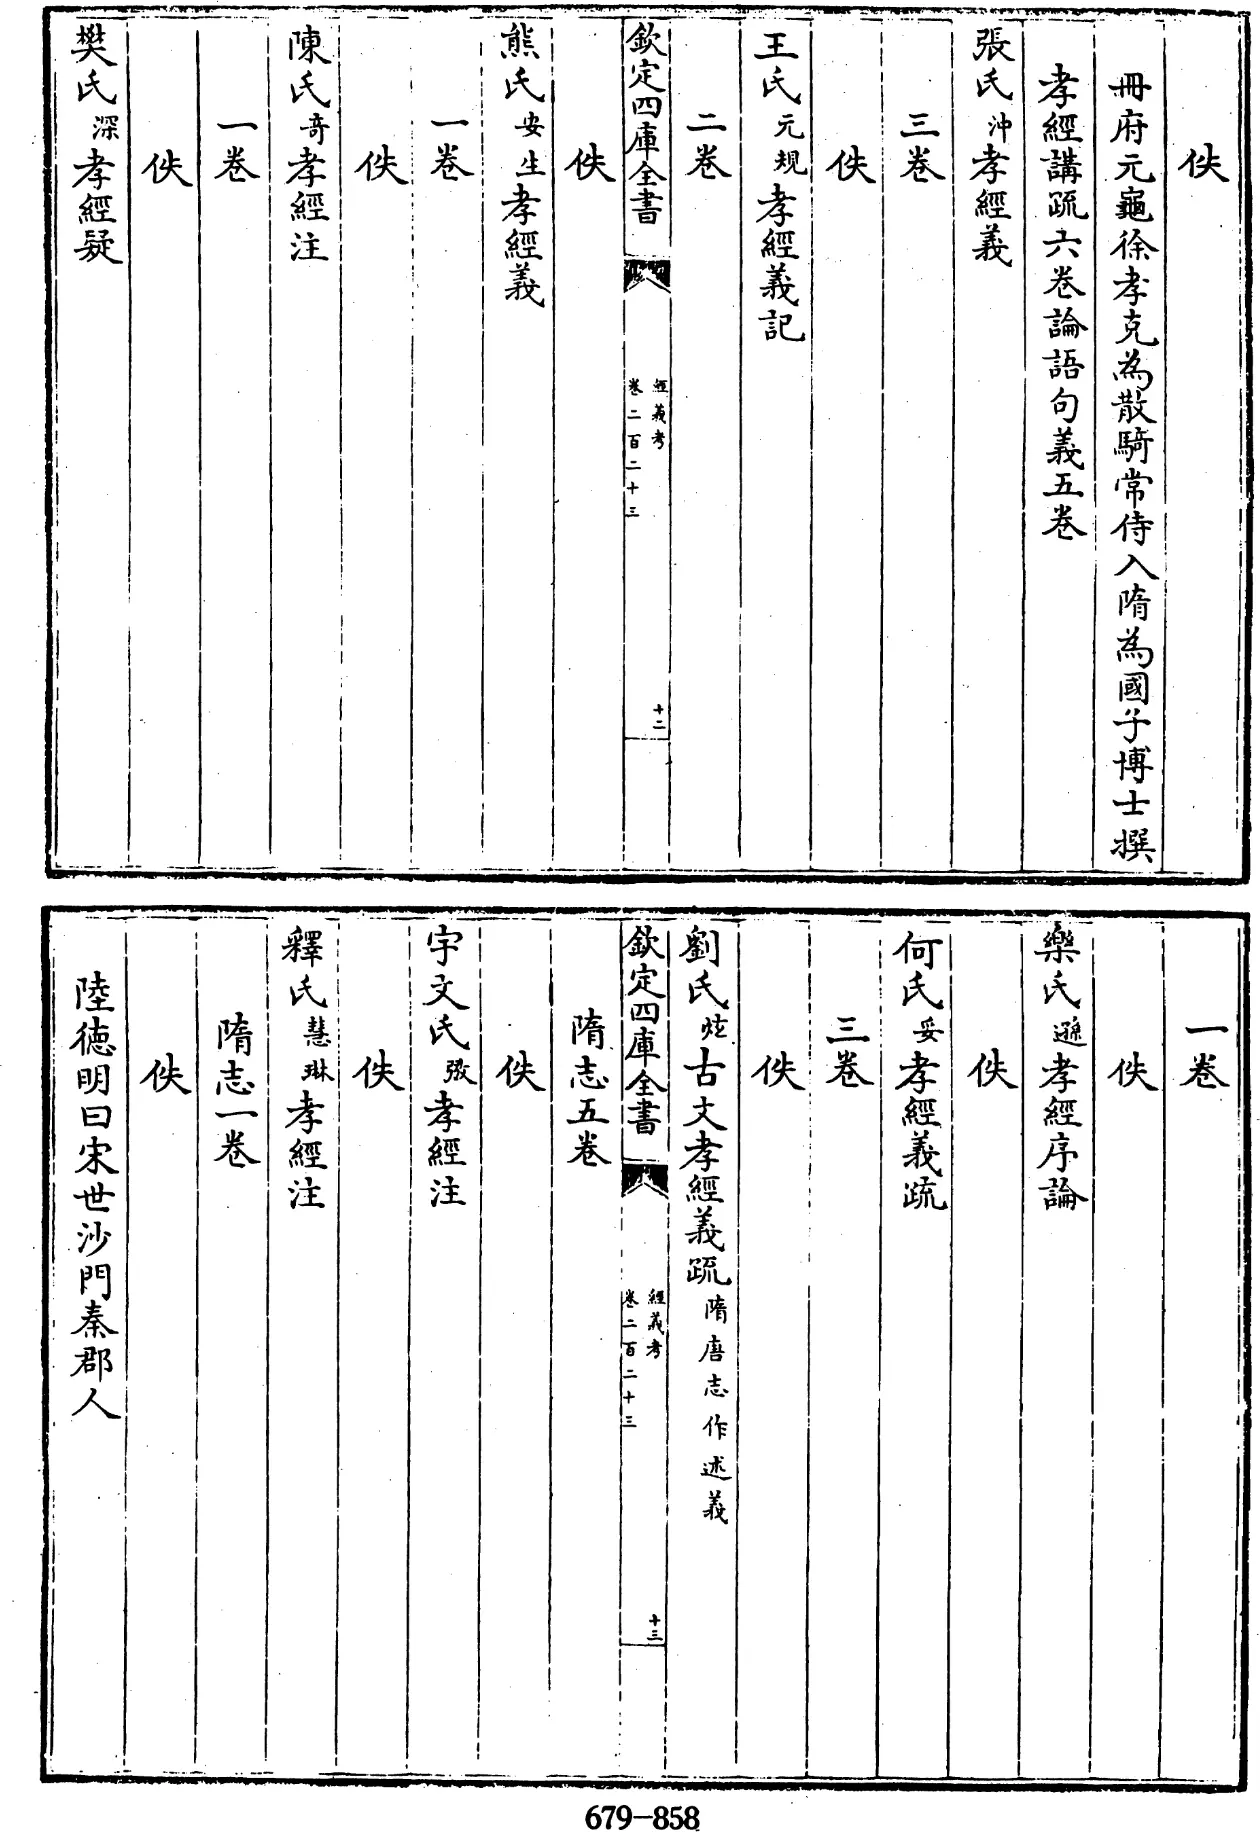 佚
冊府元龜徐孝克為散騎常侍入隋為國子博士撰
孝經講疏六卷論語句義五卷
張氏沖孝經義
三卷
佚
王氏元規孝經義記
二卷
欽定四庫全書
經義考
卷二百二十三
十二
佚
熊氏安生孝經義
一卷
佚
陳氏奇孝經注
一卷
佚
樊氏深孝經疑
一卷
佚
樂氏遜孝經序論
佚
何氏妥孝經義疏
三卷
佚
劉氏炫古文孝經義疏隋唐志作述義
欽定四庫全書
經義考
卷二百二十三
十三
隋志五卷
佚
宇文氏㢸孝經注
佚
釋氏慧琳孝經注
隋志一卷
佚
陸德明曰宋世沙門秦郡人
679-858